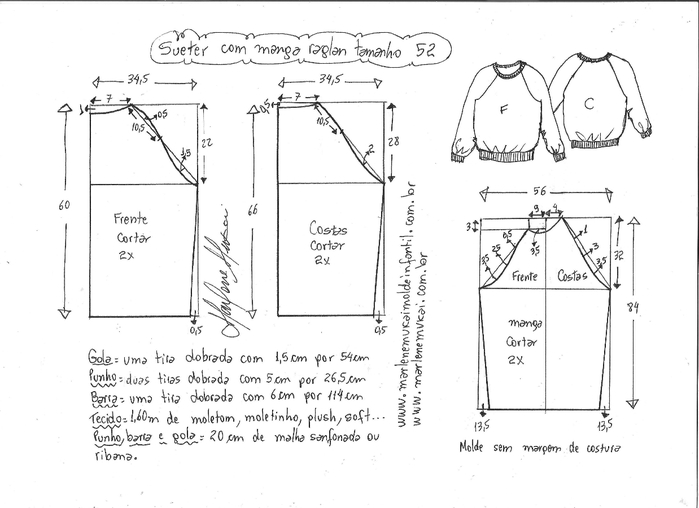 Sueter com manga raglan tamanho 52
34,5
7
1
0,5
10,5
1,5
22
60
Frente
Cortar
2x
0,5
34,5
7
0,5
10,5
2
28
66
Costas
Cortar
2x
0,5
Marlene Mukai
www.marlenemukaimoldeinfantil.com.br
www.marlenemukai.com.br
F
C
56
9
4
3
3,5
0,5
2,5
3,5
1
3
3,5
32
84
Frente
Costas
manga
Cortar
2x
13,5
13,5
Molde sem margem de costura
Gola = uma tira dobrada com 1,5cm por 54cm
Punho = duas tiras dobrada com 5cm por 26,5cm
Barra = uma tira dobrada com 6cm por 114cm
Tecido = 1,60m de moletom, moletinho, plush, soft...
Punho, barra e gola = 20 cm de malha sanfonada ou
ribana.